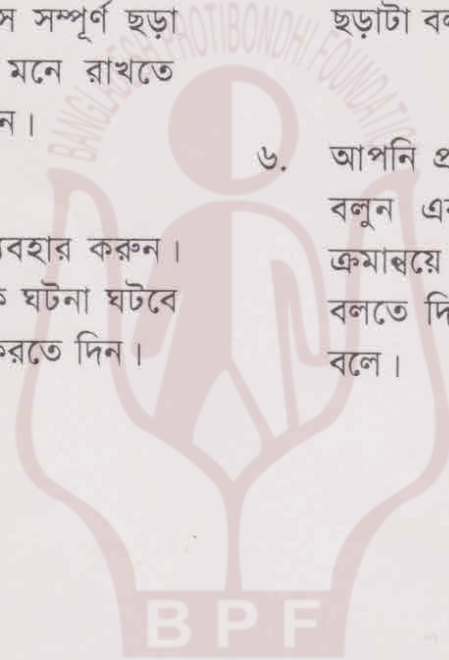 সম্পূর্ণ ছড়া
মনে রাখতে
ন।
ব্যবহার করুন।
ঘটনা ঘটবে
করতে দিন।
ছড়াটা
৬. আপনি
বলুন
ক্রমান্বয়ে
বলতে
বলে।
BANGLADESH PROTIBONDHI FOUNDATION
BPF